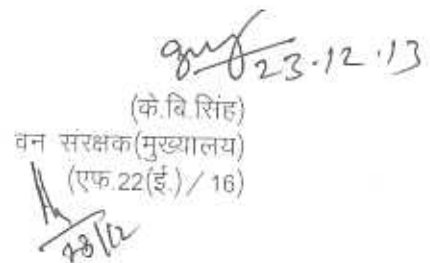 23.12.13
(के.बि.सिंह)
वन संरक्षक(मुख्यालय)
(एफ.22(ई.) / 16)
23/12